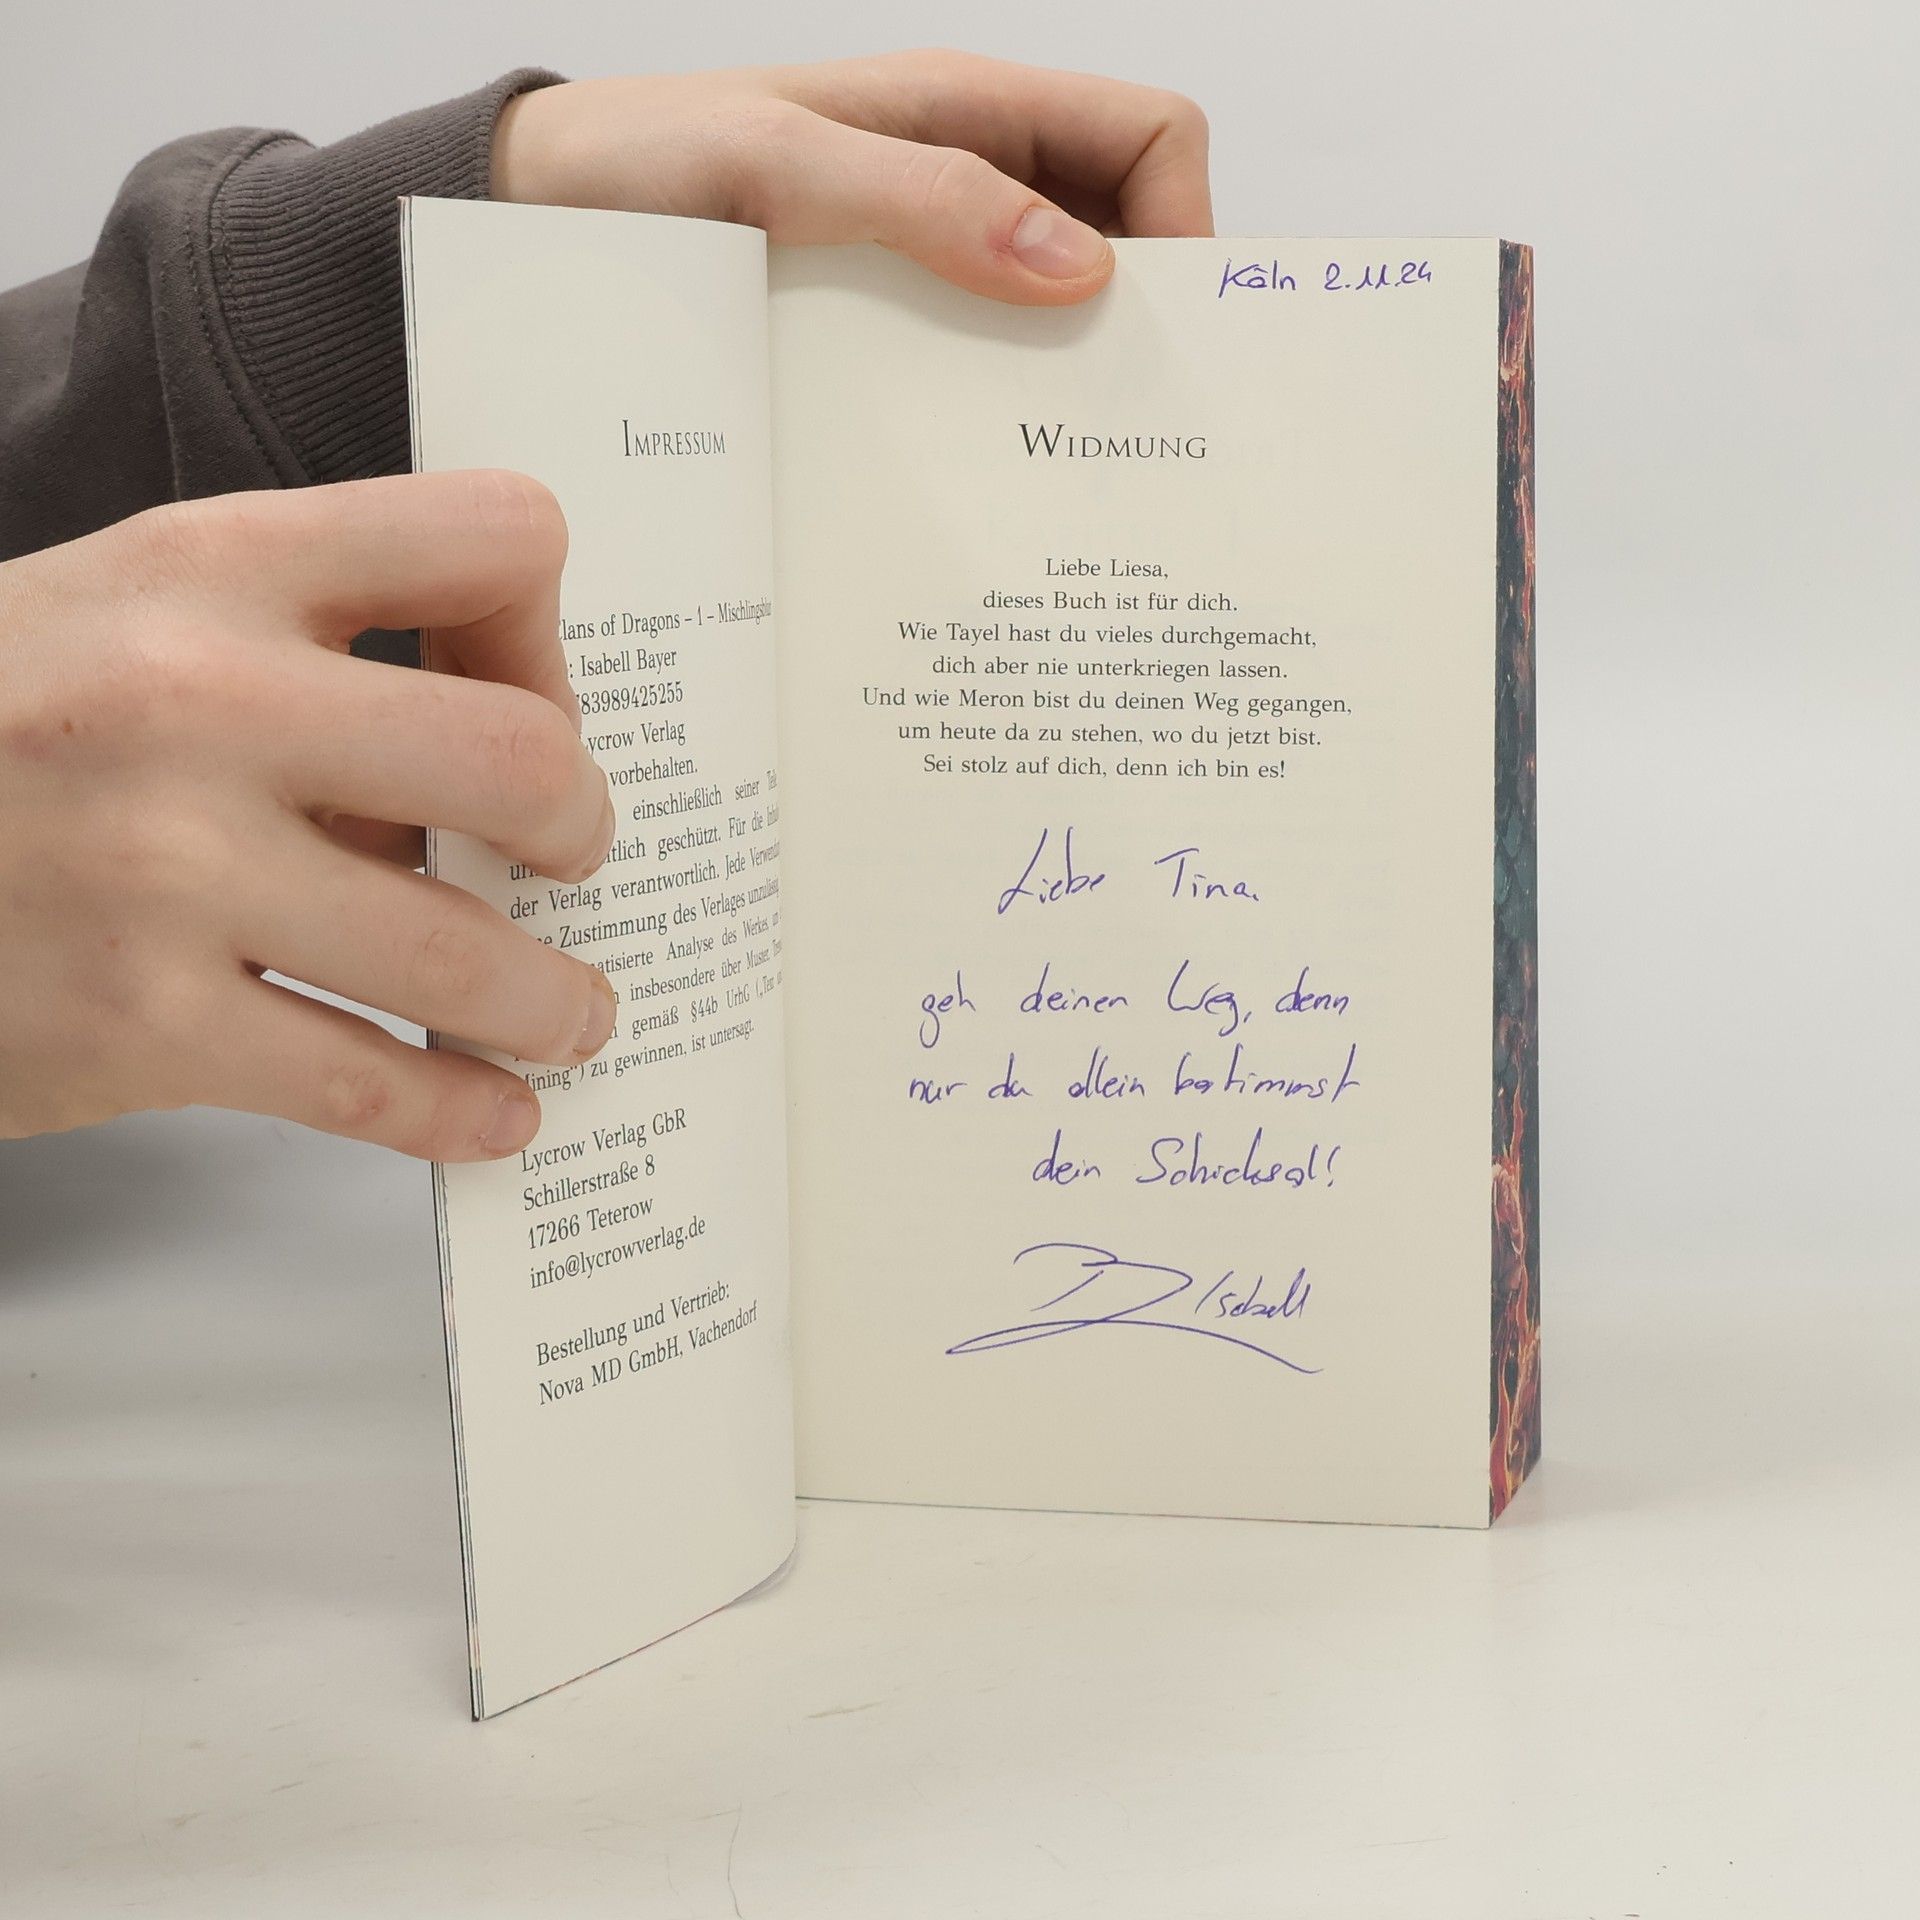 IMPRESSUM
lans of Dragons – 1 –
: Isabell Bayer
83989425255
ycrow Verlag
vorbehalten.
einschließlich seiner
tlich geschützt. Für die
der Verlag verantwortlich. Jede
Zustimmung des Verlages
atisierte Analyse des Werkes,
insbesondere über Muster,
gemäß §44b UrhG
ining“) zu gewinnen, ist untersagt.
Lycrow Verlag GbR
Schillerstraße 8
17266 Teterow
info@lycrowverlag.de
Bestellung und Vertrieb:
Nova MD GmbH, Vachendorf
Köln 2.11.24
WIDMUNG
Liebe Liesa,
dieses Buch ist für dich.
Wie Tayel hast du vieles durchgemacht,
dich aber nie unterkriegen lassen.
Und wie Meron bist du deinen Weg gegangen,
um heute da zu stehen, wo du jetzt bist.
Sei stolz auf dich, denn ich bin es!
Liebe Tina,
geh deinen Weg, denn
nur du allein bestimmst
dein Schicksal!
Isabell